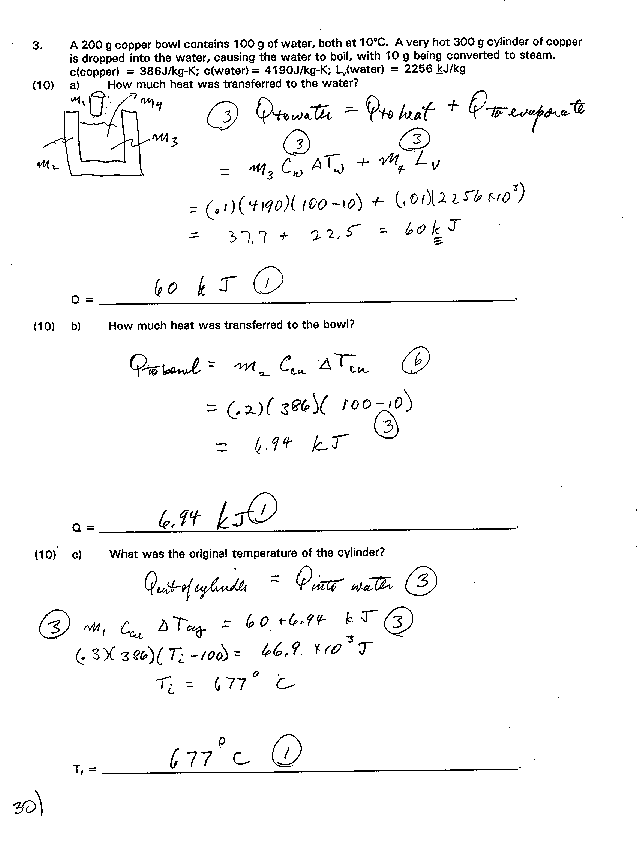 3. A 200 g copper bowl contains 100 g of water, both at 10°C. A very hot 300 g cylinder of copper
is dropped into the water, causing the water to boil, with 10 g being converted to steam.
c(copper) = 386J/kg-K; c(water) = 4190J/kg-K; Lv(water) = 2256 kJ/kg
(10) a) How much heat was transferred to the water?
m1 m4
m2 m3
③ Q to water = Q to heat + Q to evaporate
③ ③
= m3 Cw ΔTw + m4 Lv
= (.1)(4190)(100-10) + (.01)(2256 x10³)
= 37.7 + 22.5 = 60 kJ
Q = 60 kJ ①
(10) b) How much heat was transferred to the bowl?
Q to bowl = m2 Ccu ΔTcu ⑥
= (.2)(386)(100-10)
= 6.94 kJ ③
Q = 6.94 kJ ①
(10) c) What was the original temperature of the cylinder?
Q out of cylinder = Q into water ③
③ m1 Ccu ΔTcy = 60 + 6.94 kJ ③
(.3)(386)(Ti -100) = 66.9 x10³ J
Ti = 677° C
Ti = 677° C ①
30)